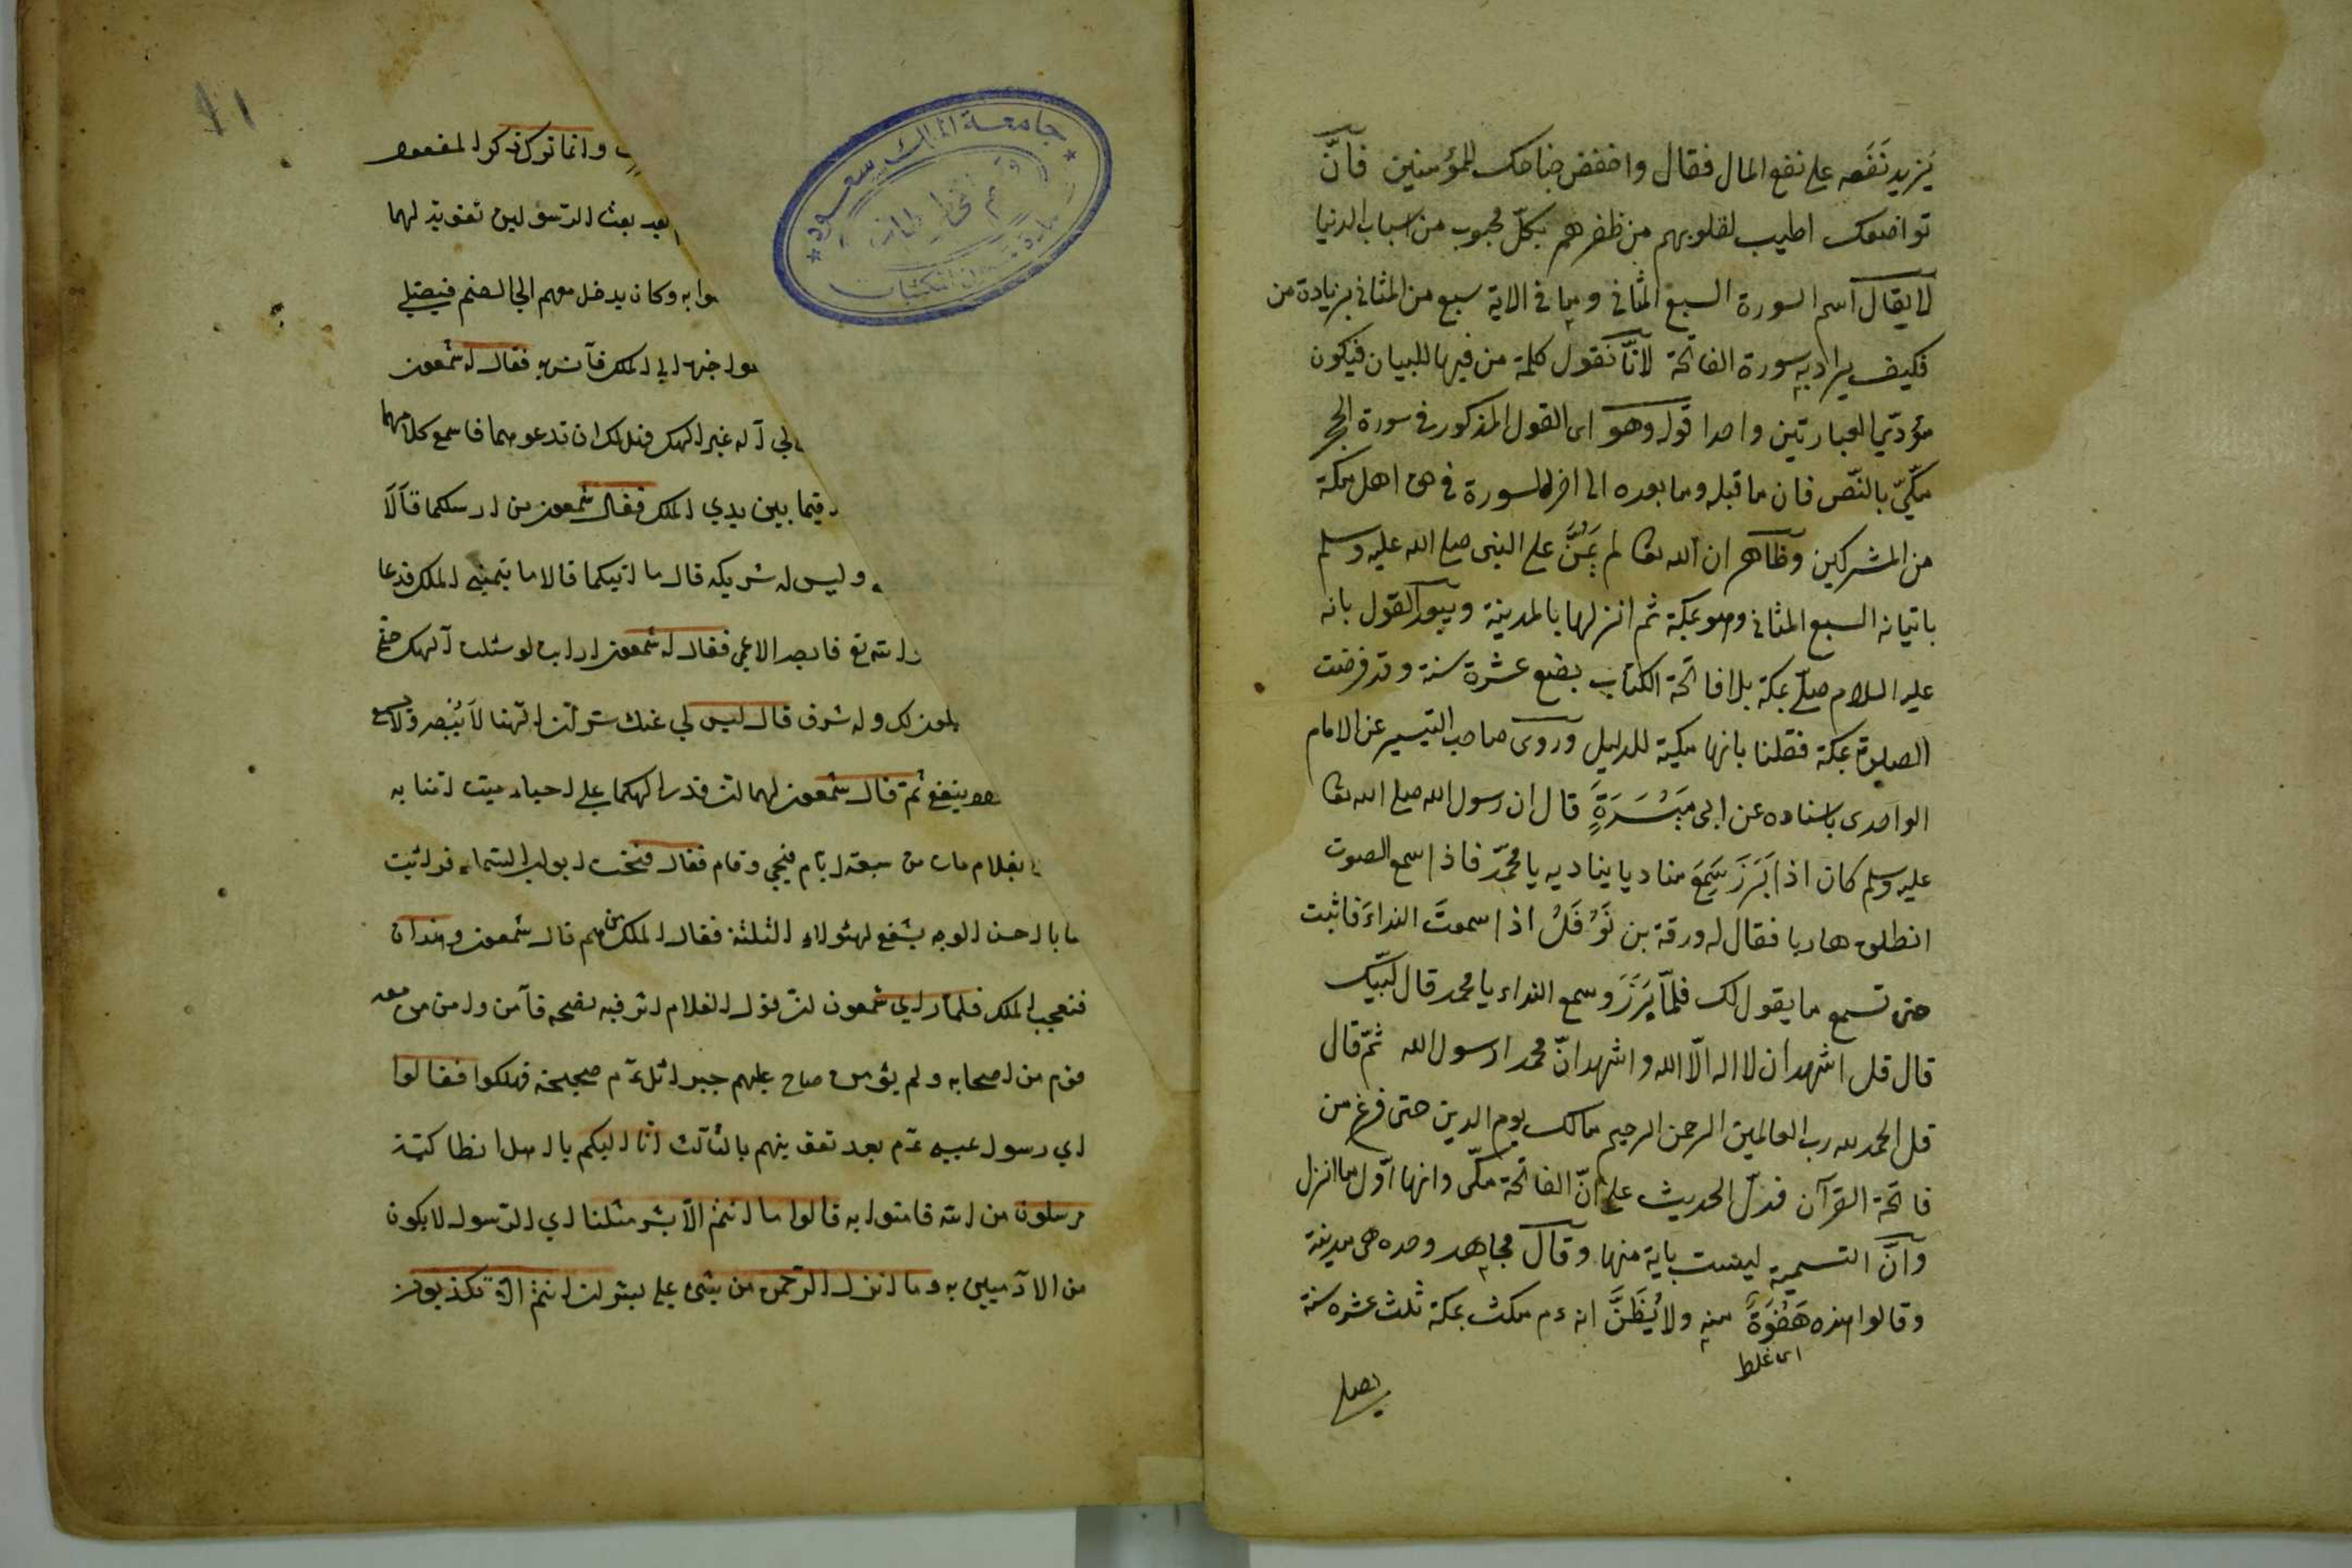 يَزيد نَفَعه على نفع المال فقال واخفض جناحك للمؤمنين فانّ
تواضعك اطيب لقلوبهم من ظفرهم بكلّ محبوب من اسباب الدنيا
لا يقال اسم السورة السبع المثاني وما في الاية سبع من المثاني بزيادة من
فكيف يراد به سورة الفاتحة لانّا نقول كلمة من فيها للبيان فيكون
مؤدّي العبارتين واحدا قوله وهو اى القول المذكور فى سورة الحجر
مكّيّ بالنّص فان ما قبله وما بعده الى اخر السورة فى حق اهل مكة
من المشركين وظاهر ان الله تعا لم يَمُنَّ على النبى صلى الله عليه وسلم
باتيانه السبع المثانى وهو بمكة ثم انزلها بالمدينة ويبعد القول بانه
عليه السلام صلّى بمكة بلا فاتحة الكتاب بضع عشرة سنة وقد فرضت
الصلوة بمكة فقلنا بانها مكية للدليل وروى صاحب التيسير عن الامام
الواحدى باسناده عن ابى مَيْسَرَةٍ قال ان رسول الله صلى الله تعا
عليه وسلم كان اذا بَرَزَ سَمِعَ مناديا يناديه يا محمّد فاذا سمع الصوت
انطلق هاربا فقال له ورقة بن نَوْفَلْ اذا سمعتَ النداءَ فاثبت
حتى تسمع ما يقول لك فلمّا بَرَزَ وسمع النداء يا محمد قال لبّيك
قال قل اشهد ان لا اله الّا الله واشهد انّ محمدا رسول الله ثمّ قال
قل الحمد لله رب العالمين الرحمن الرحيم مالك يوم الدين حتى فرغ من
فاتحة القرآن فدلّ الحديث على انّ الفاتحة مكّى وانها اوّل ما انزل
وانّ التسمية ليست باية منها وقال مجاهد وحده هى مدينة
وقالوا هذه هَفْوَةٌ منه ولا يُظَنَّ انه ءم مكث بمكة ثلث عشره سنة
اى غلط
يصلى
وانما ترك ذكر المفعول
بعد بعث الرسولين تقوية لهما
وا به وكان يدخل معهم الى الصنم فيصلي
فقال له شمعون
لي آله غير الهك فهل لك ان تدعوهما فاسمع كلامهما
بين يدي الملك فقال شمعون من ارسلكما قالا
وليس له شريك قال ما اتيكما قالا ما يتمنى الملك فدعا
الله تع فابصر الاعمى فقال له شمعون ارايت لو سئلت آلهك حتى
لك وله شرف قال ليس لي عنك سرّ ان الهنا لا يُبصر ولا يسمع
ينفع ثمّ قال شمعون لهما ان قدر الهكما على احياء ميت امنا به
بغلام مات من سبعة ايام فيحي وقام فقال فتحت ابواب السماء فرايت
شابا حسن الوجه يشفع لهئولاء الثلثة فقال الملك من هم قال شمعون وهذان
فتعجب الملك فلما رأي شمعون ان قول الغلام اثر فيه نصحه فآمن وامن من معه
قوم من اصحابه ولم يؤمن صاح عليهم جبرائل عم صيحة فهلكوا فقالوا
اي رسول عيسى عم بعد تقويتهم بالثالث انا اليكم يا اهل انطاكية
مرسلون من الله فامنوا به قالوا ما انتم الا بشر مثلنا اي الرسول لا يكون
من الآدميين وما انزل الرحمن من شئ على بشر ان انتم الا تكذبون
٤١
جامعة الملك سعود
قسم المخطوطات
عمادة شئون المكتبات